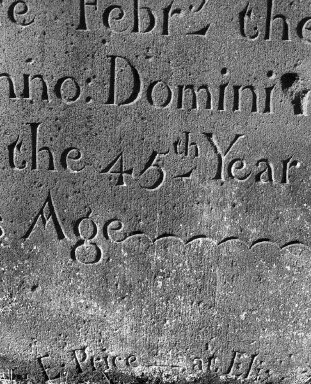 e Febr2 the
nno: Domini 1
the 45th Year
s Age
E. Price at Eli